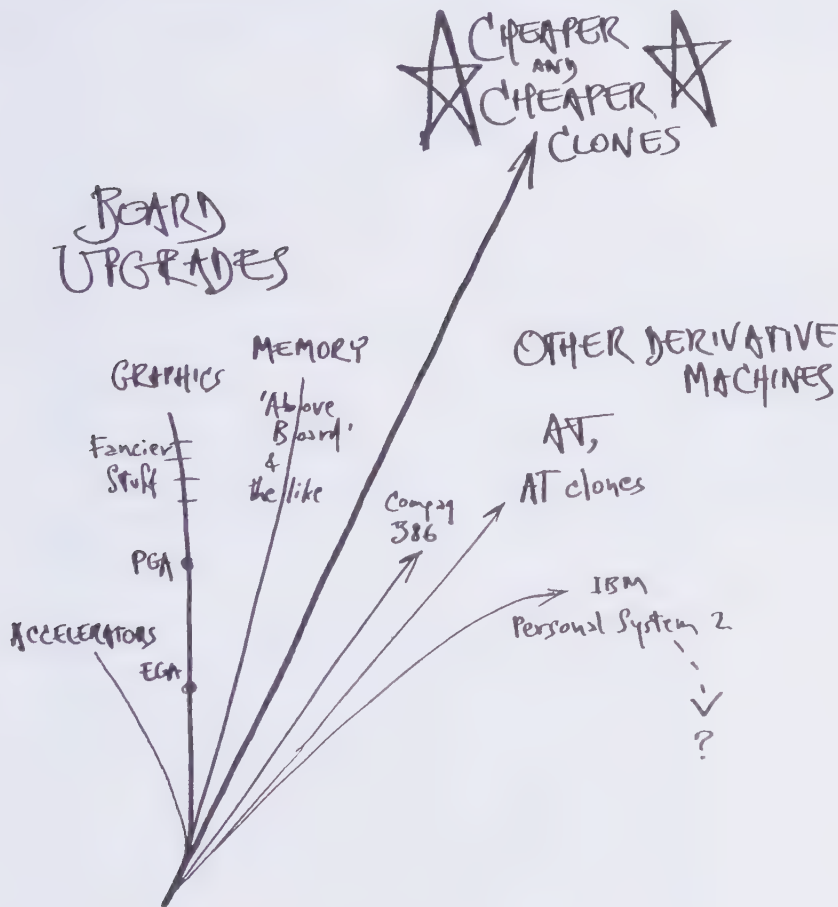 CHEAPER
AND
CHEAPER
CLONES
BOARD
UPGRADES
GRAPHICS
Fancier
Stuff
PGA
EGA
ACCELERATORS
MEMORY
'Above
Board'
&
the like
OTHER DERIVATIVE
MACHINES
AT,
AT clones
Compaq
386
IBM
Personal System 2
?